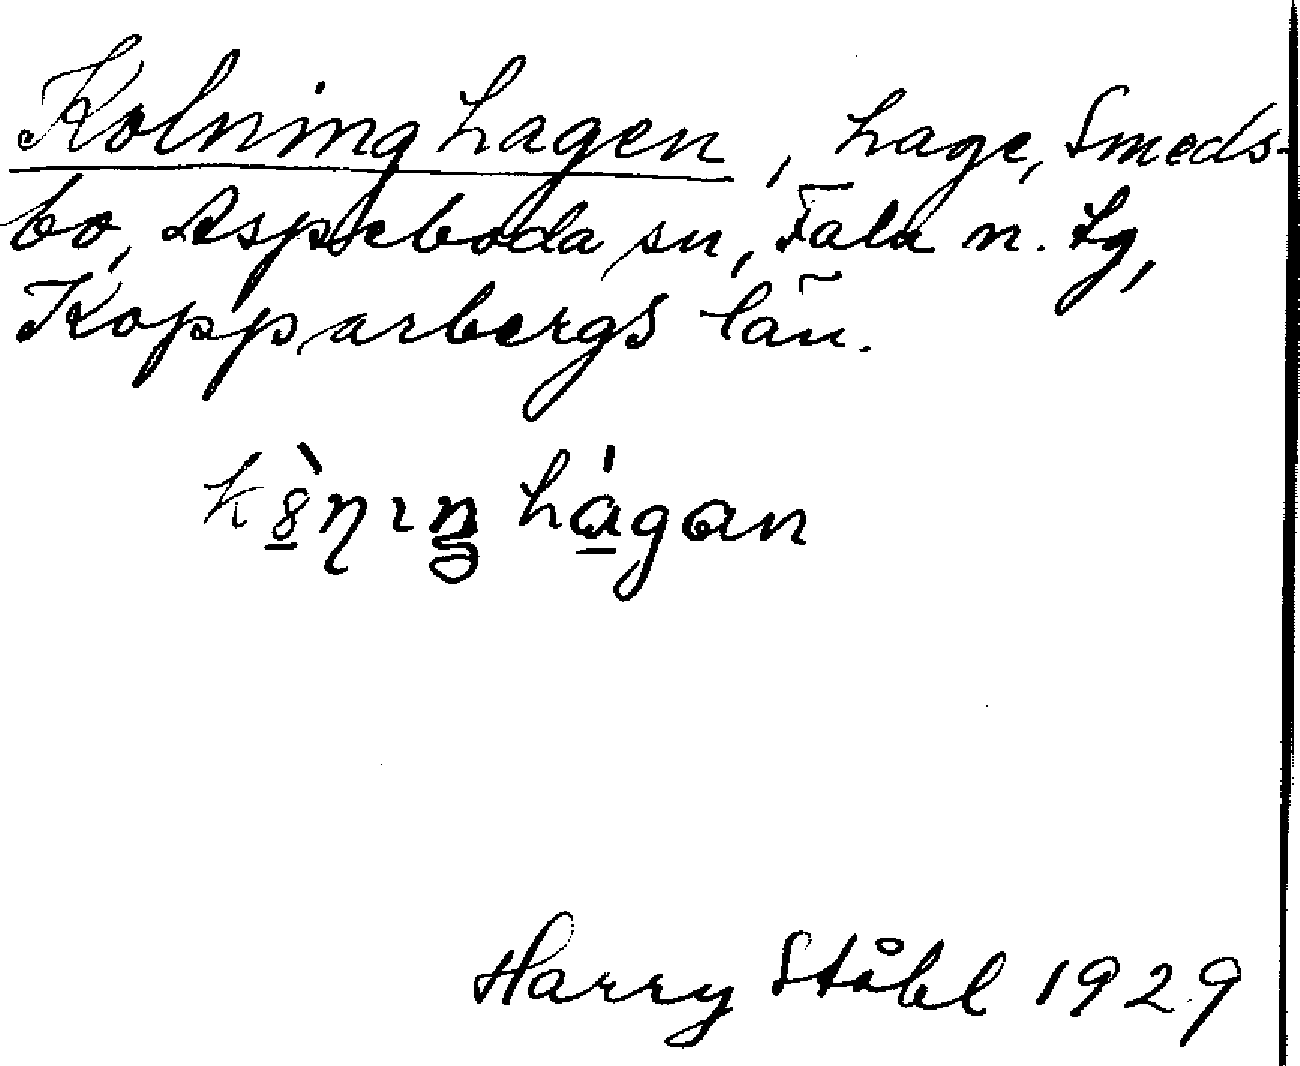 Kolninghagen, hage, Smeds-
bo, Aspeboda sn, Falu n. tg,
Kopparbergs län.
hagan
Harry Ståhl 1929